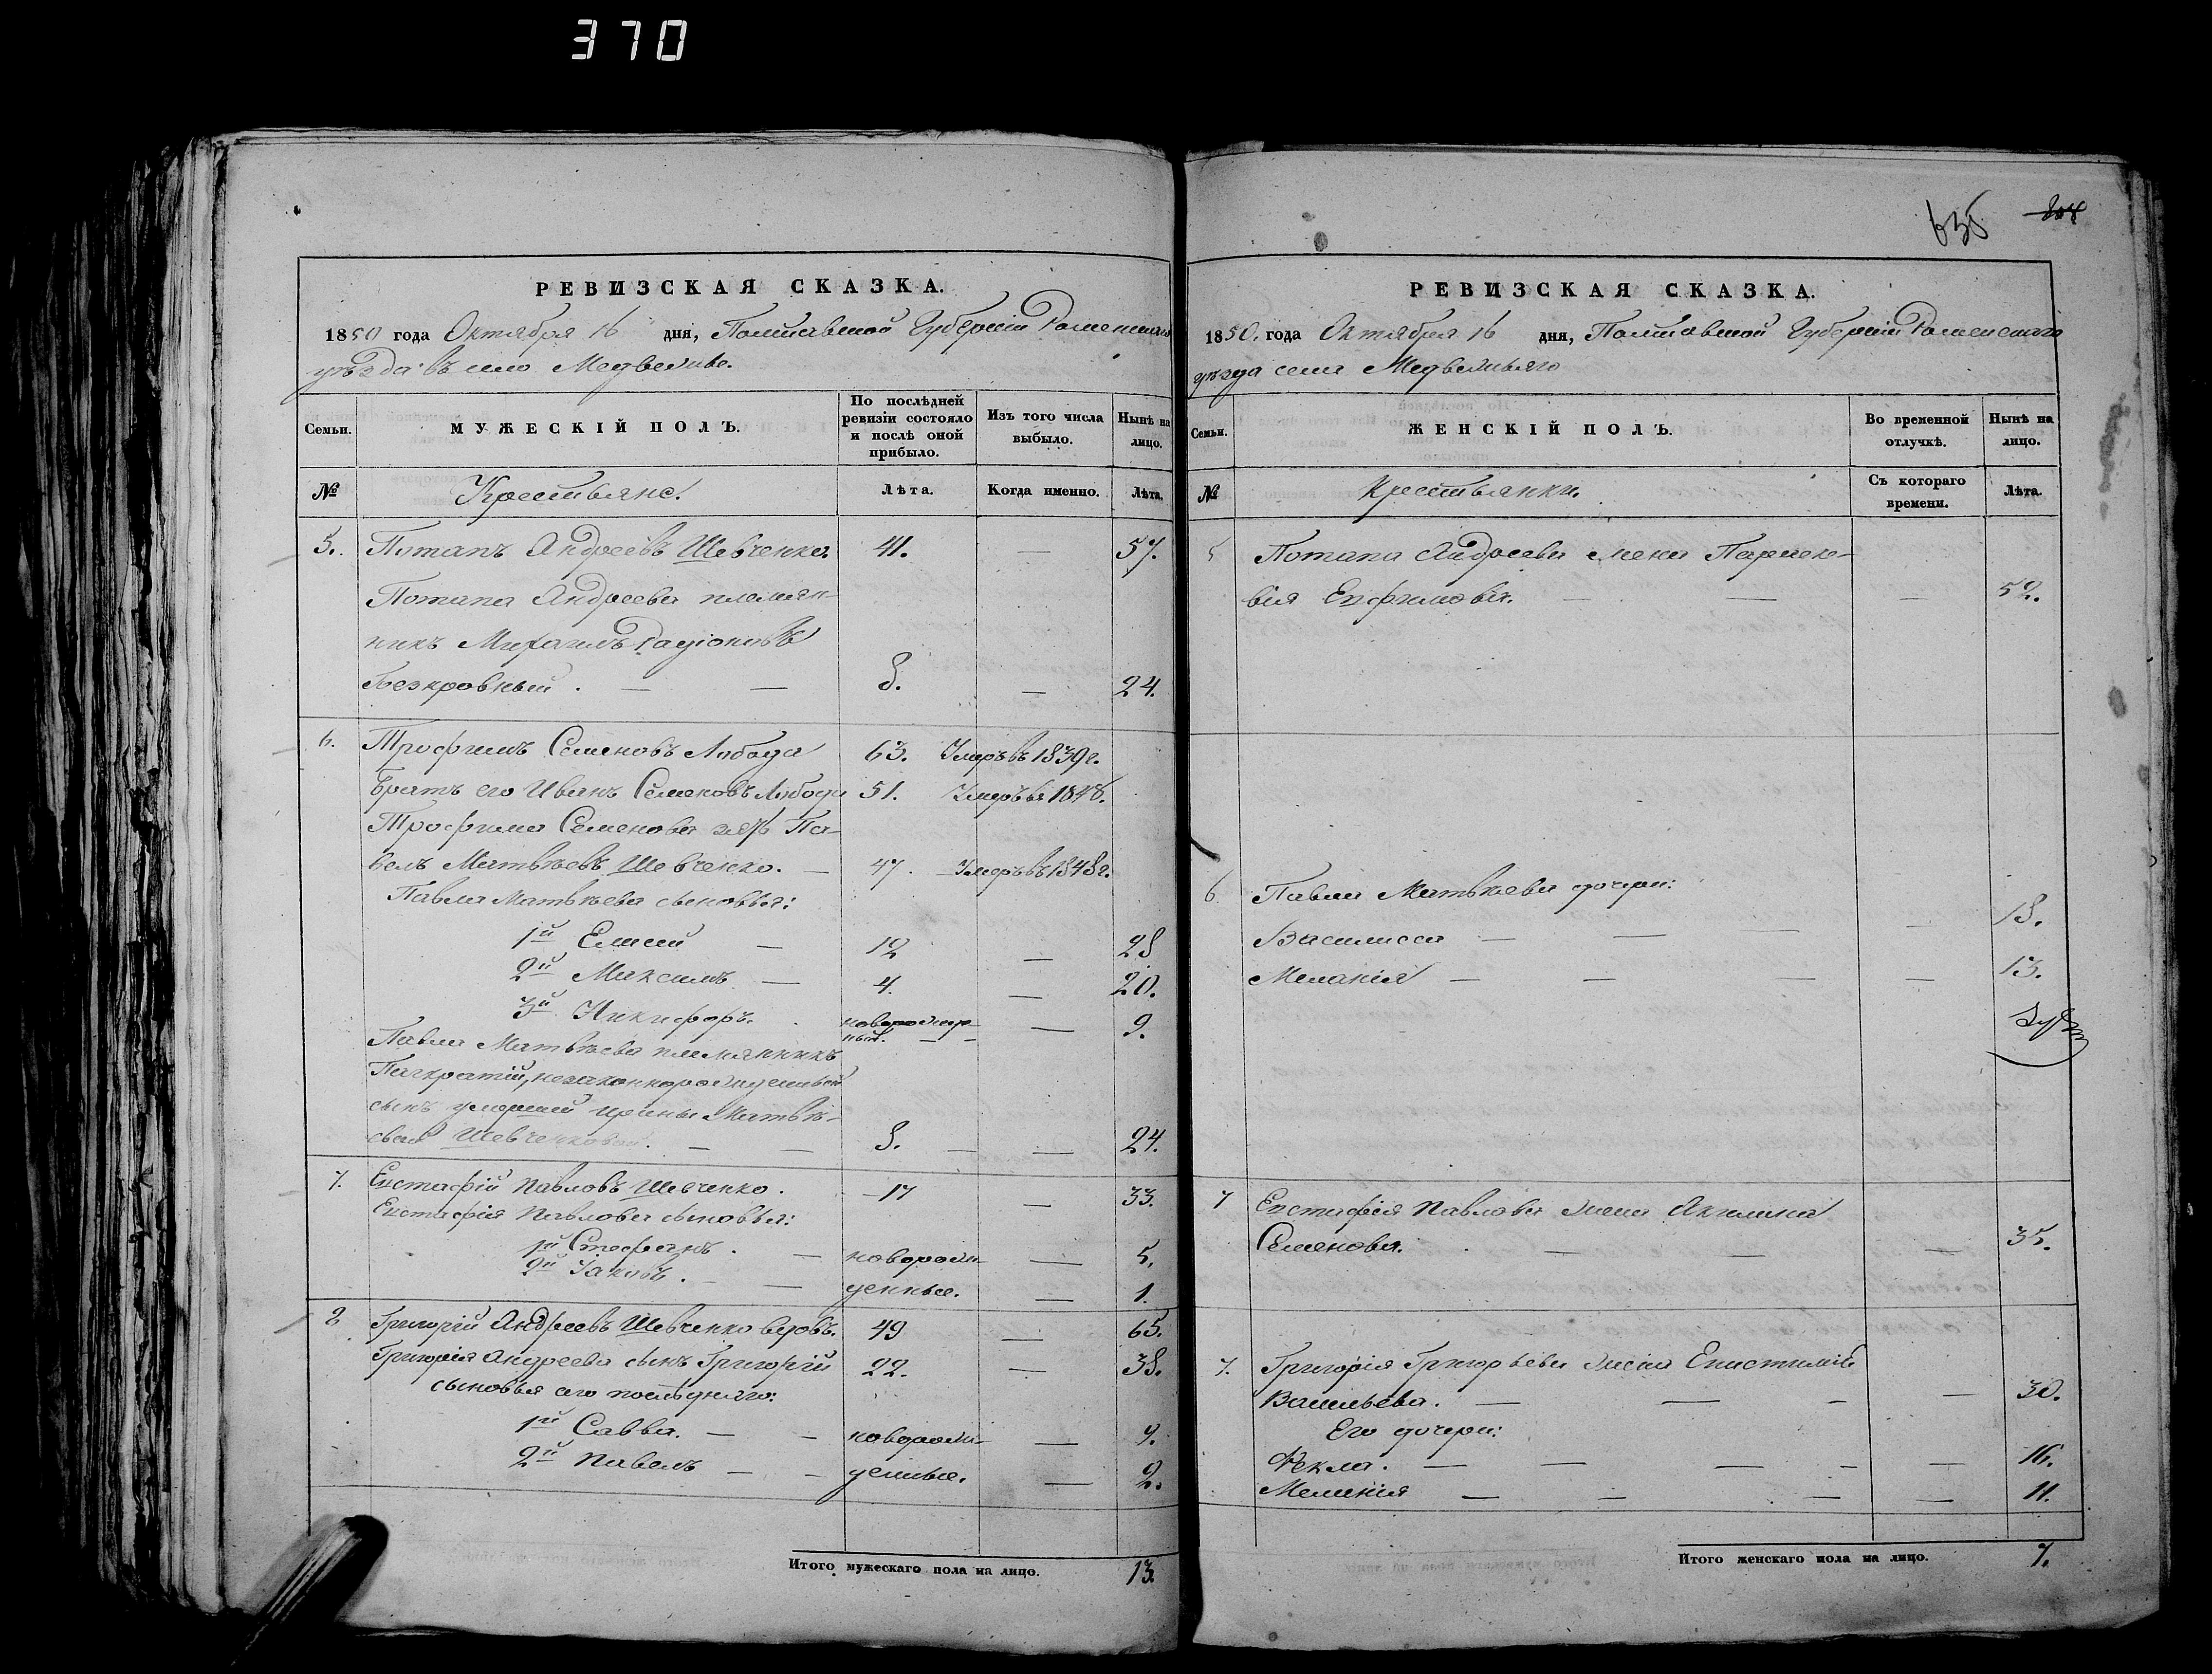 370
635
РЕВИЗСКАЯ СКАЗКА.
1850 года Октября 16 дня, Полтавской Губерніи Роменскаго
уѣзда въ селѣ Медвежье.
Семьи. МУЖЕСКІЙ ПОЛЪ. По послѣдней ревизіи состояло и послѣ оной прибыло. Изъ того числа выбыло. Нынѣ на лицо.
№ Крестьяне. Лѣта. Когда именно. Лѣта.
5. Потапъ Андреевъ Шевченко. 41. — 57.
Потапа Андреева племян-
никъ Михаилъ Радіоновъ
Безкровный . — — 8. — 24.
6. Трофимъ Семеновъ Лобода 63. Умеръ въ 1839 г.
Братъ его Иванъ Семеновъ Лобода 51. Умеръ въ 1848.
Трофима Семенова зять Па-
велъ Матвѣевъ Шевченко. — 47. Умеръ въ 1848 г.
Павла Матвѣева сыновья:
1й Елисей — 12 — 28
2й Максимъ — 4. — 20.
3й Никифоръ. новорожден-
ный. — — — 9.
Павла Матвѣева племянникъ
Панкратій, незаконнорожденный
сынъ умершей Ирины Матвѣ-
евой Шевченковой. — — 8. — — 24.
7. Евстафій Павловъ Шевченко. 17 — 33.
Евстафія Павлова сыновья:
1й Стефанъ. — новорож- — 5.
2й Яковъ. — — денные. — 1.
8 Григорій Андреевъ Шевченко вдовъ. 49 — 65.
Григорія Андреева сынъ Григорій 22. — 38.
сыновья его послѣдняго:
1й Савва. — — новорож- — 9.
2й Павелъ — — денные. — 2.
Итого мужескаго пола на лицо. 13.
РЕВИЗСКАЯ СКАЗКА.
1850. года Октября 16 дня, Полтавской Губерніи Роменскаго
уѣзда села Медвежьяго
Семьи. ЖЕНСКІЙ ПОЛЪ. Во временной отлучкѣ. Нынѣ на лицо.
№ Крестьянки. Съ котораго времени. Лѣта.
5 Потапа Андреева жена Параске-
вія Ефимова. — — — 52.
6. Павла Матвѣева дочери:
Василиса — — — — 18.
Меланія — — — — 13.
7 Евстафія Павлова жена Акилина
Семенова. — — — 35.
7. Григорія Григорьева жена Епистимія
Васильева. — — — — 30.
Его дочери:
Фекла. — — — — — 16.
Меланія — — — — 11.
Итого женскаго пола на лицо. 7.